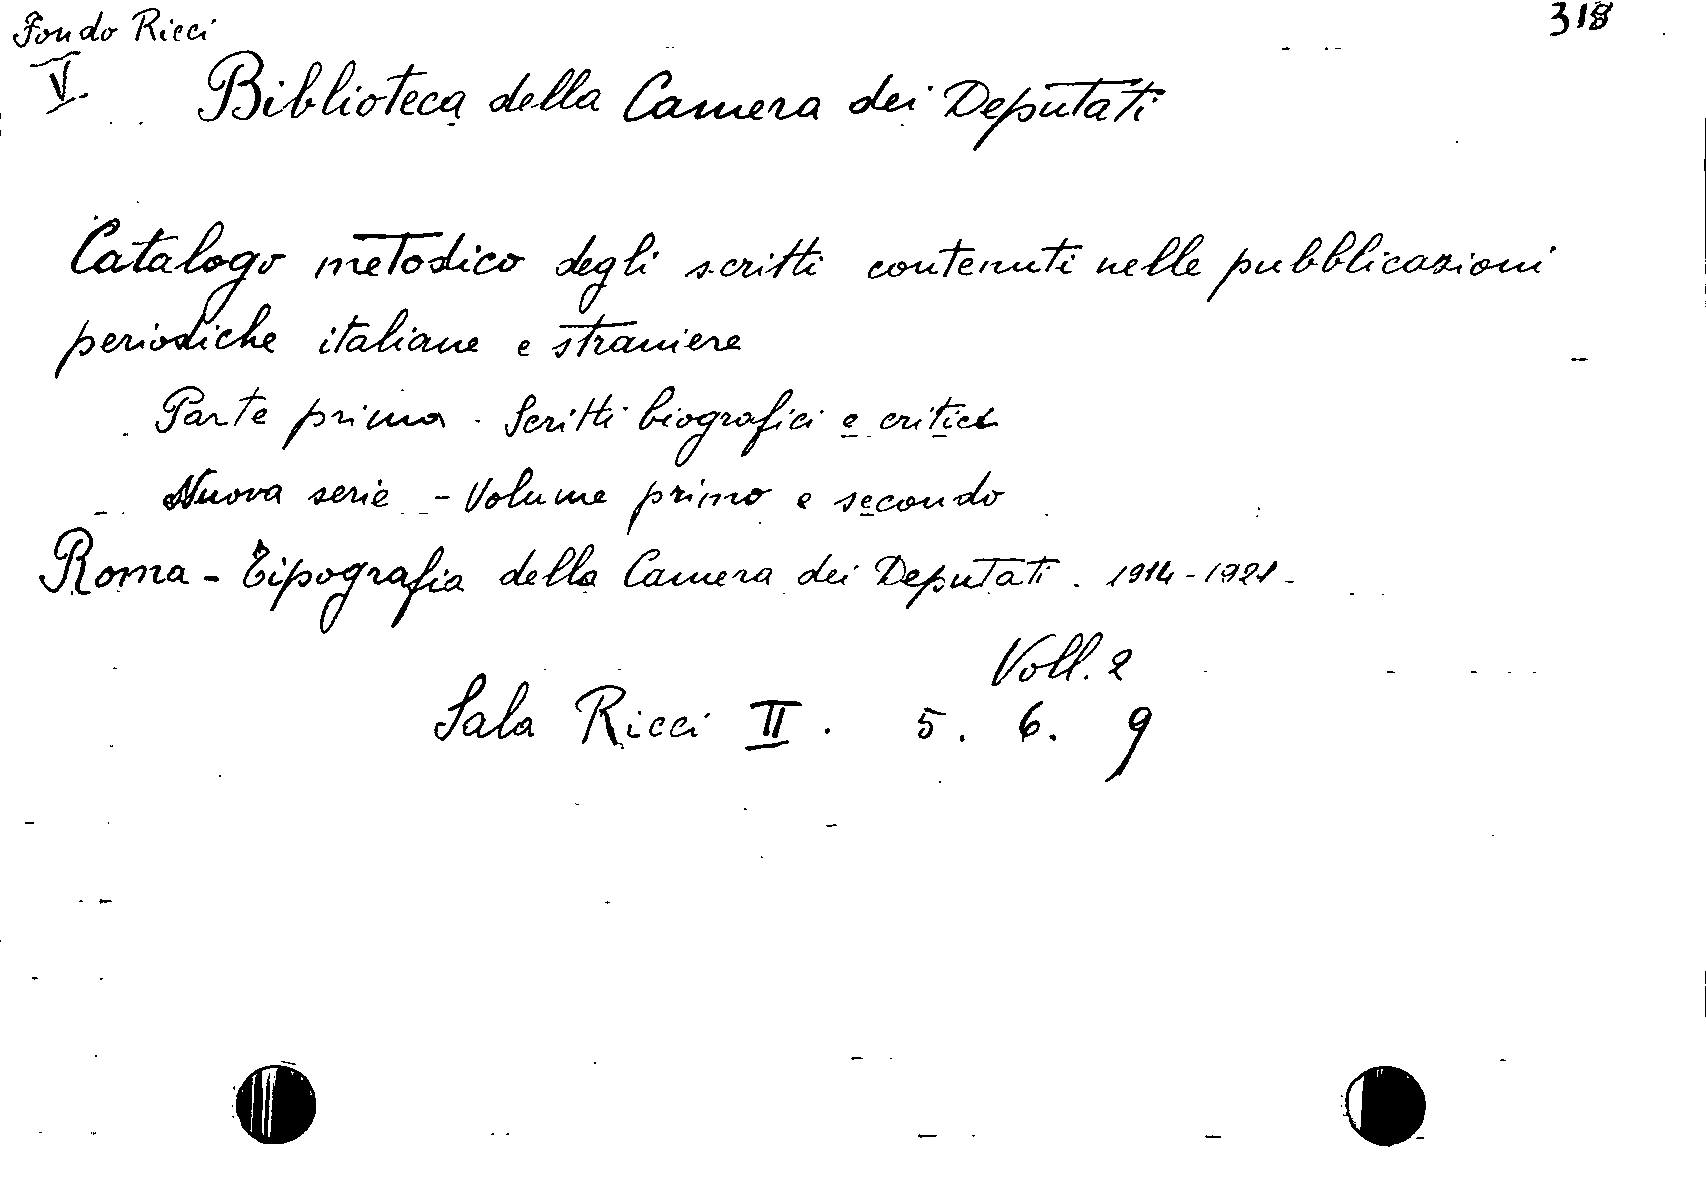 Fondo Ricci
318
V.
Biblioteca della Camera dei Deputati
Catalogo metodico degli scritti contenuti nelle pubblicazioni
periodiche italiane e straniere
Parte prima. Scritti biografici e critici
Nuova serie - Volume primo e secondo
Roma - Tipografia della Camera dei Deputati. 1914-1921-
Voll. 2
Sala Ricci II. 5. 6. 9